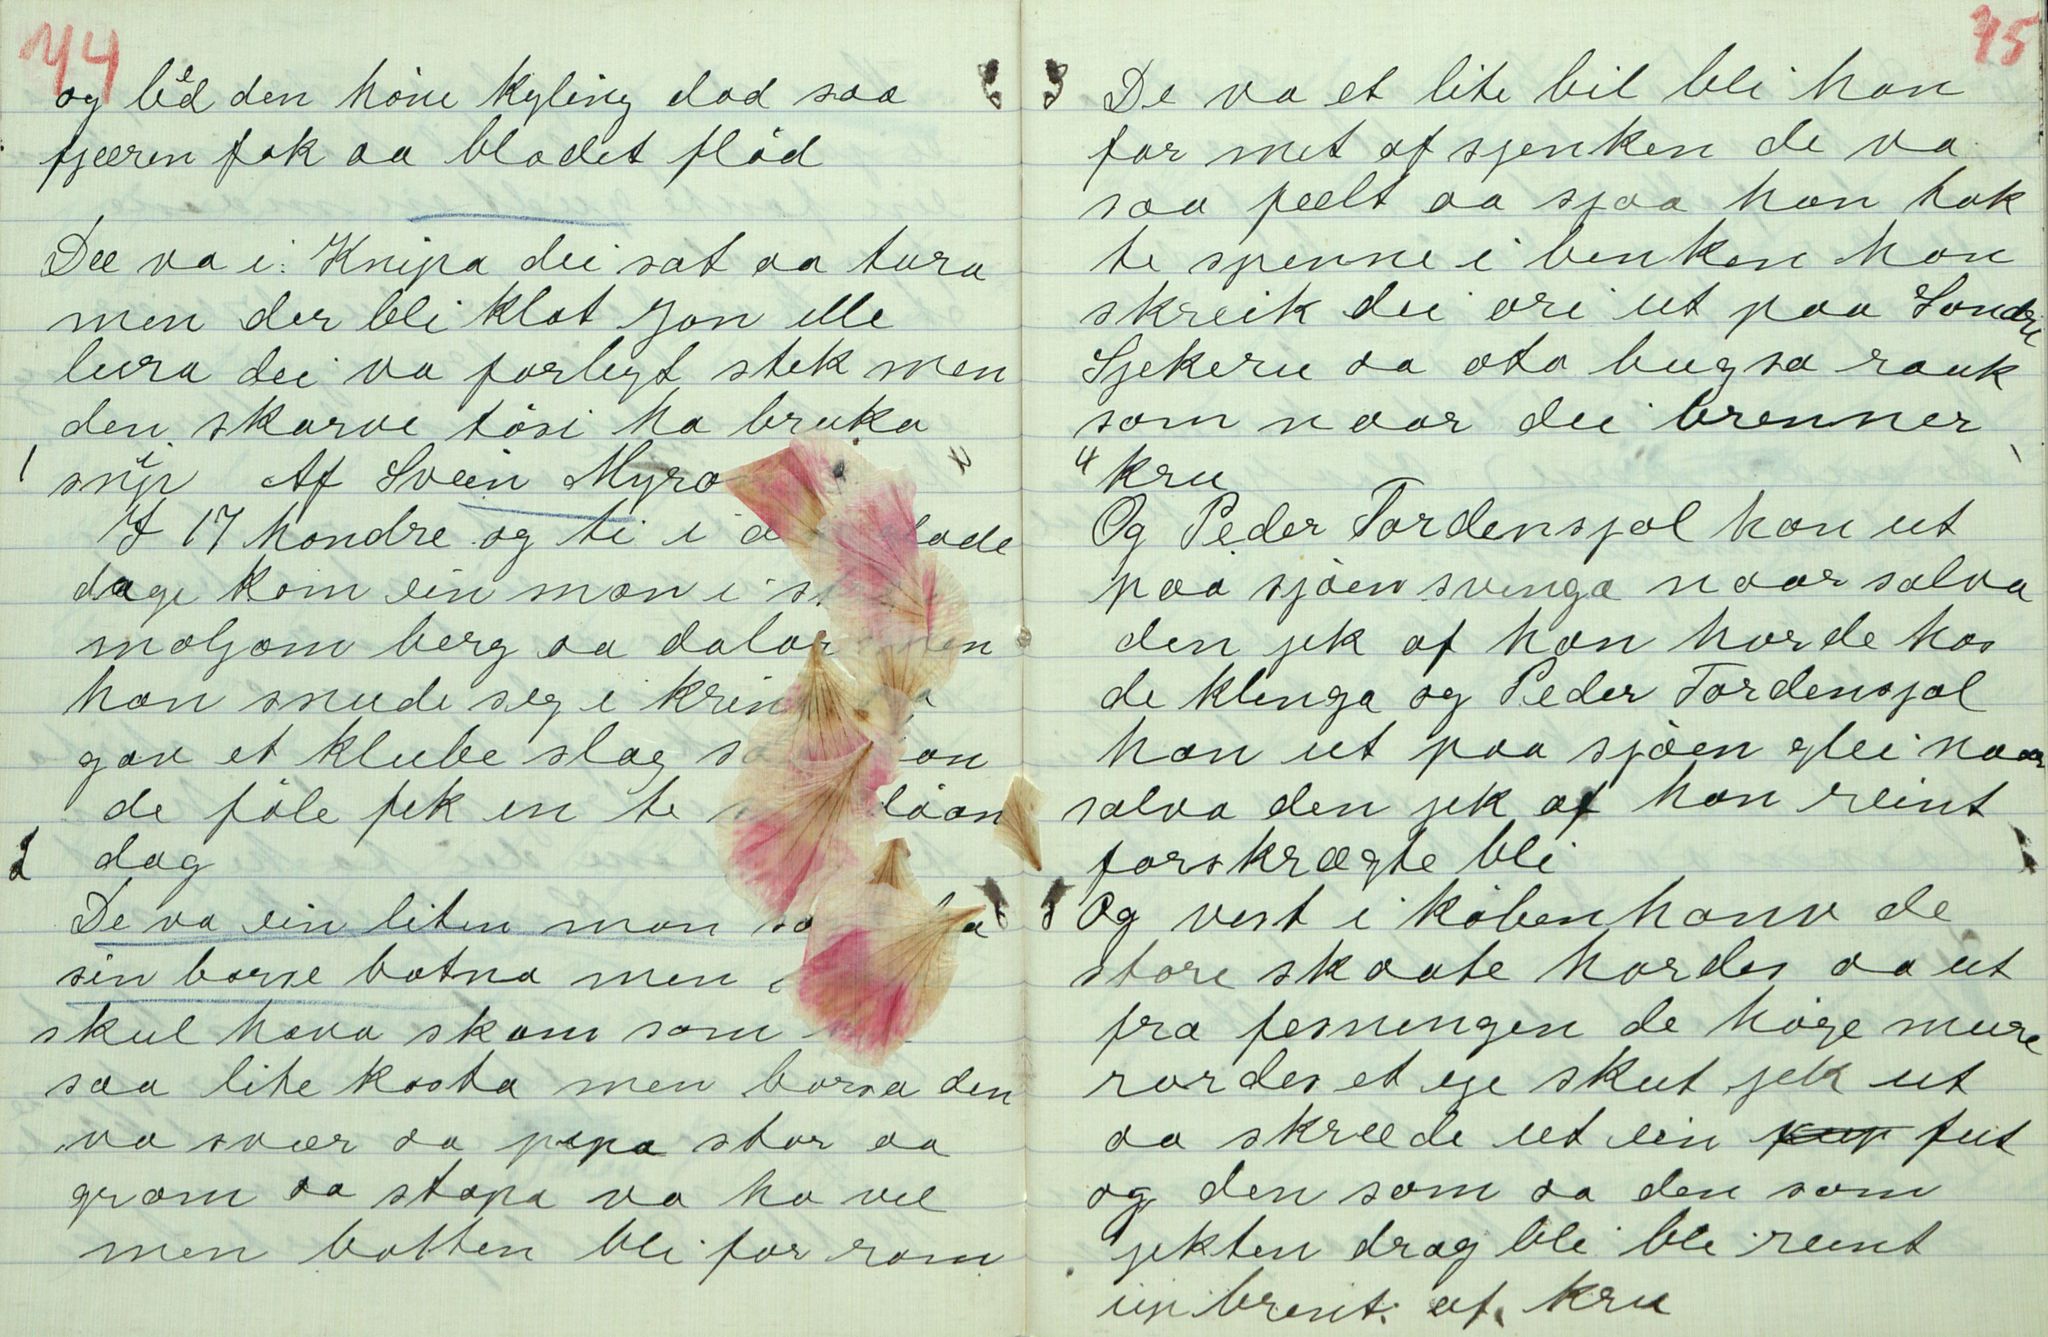 44
og lëd den höne kyling dod saa
fjæren fok aa blodet flöd
Dee va i Knipa dei sat aa tura
men der bli klat Jon ille
lura dei va forlegt stek men
den skarve tösi ha bruka
1 snïp Af Svein Myro
I 17 hondre og ti i glade
dage kom ein man i
moljom berg aa dalar men
han snude seg i
gav et klube slag
de föle fek en te
2 dag
De va ein liten man
sin borse botna men
skul hava skam som
saa lite kosta men borsa den
va svær aa pipa stor aa
gram aa stapa va ho vel
men botten bli for ram
75
3 De va et lite bil bli han
for met af sjenken de va
saa feelt aa sjaa han tok
te spenne i benken han
skreik dei ori ut paa Sondre
Sjekeru aa ota bugsa rauk
som naar dei brenner
4 kru
Og Peder Tordensjol han ut
paa sjöen svinga naar salva
den jek af han horde hos
de klinga og Peder Tordensjol
han ut paa sjöen glei naar
salva den jek af han reint
forskrægte bli
5 Og vest i köbenhanv de
store skaate hordes aa ut
fra fesningen de höge mure
rordes et eje skut jek ut
aa skreede ut ein fut
og den som aa den som
jekten drog bli bli reint
up brent af kru